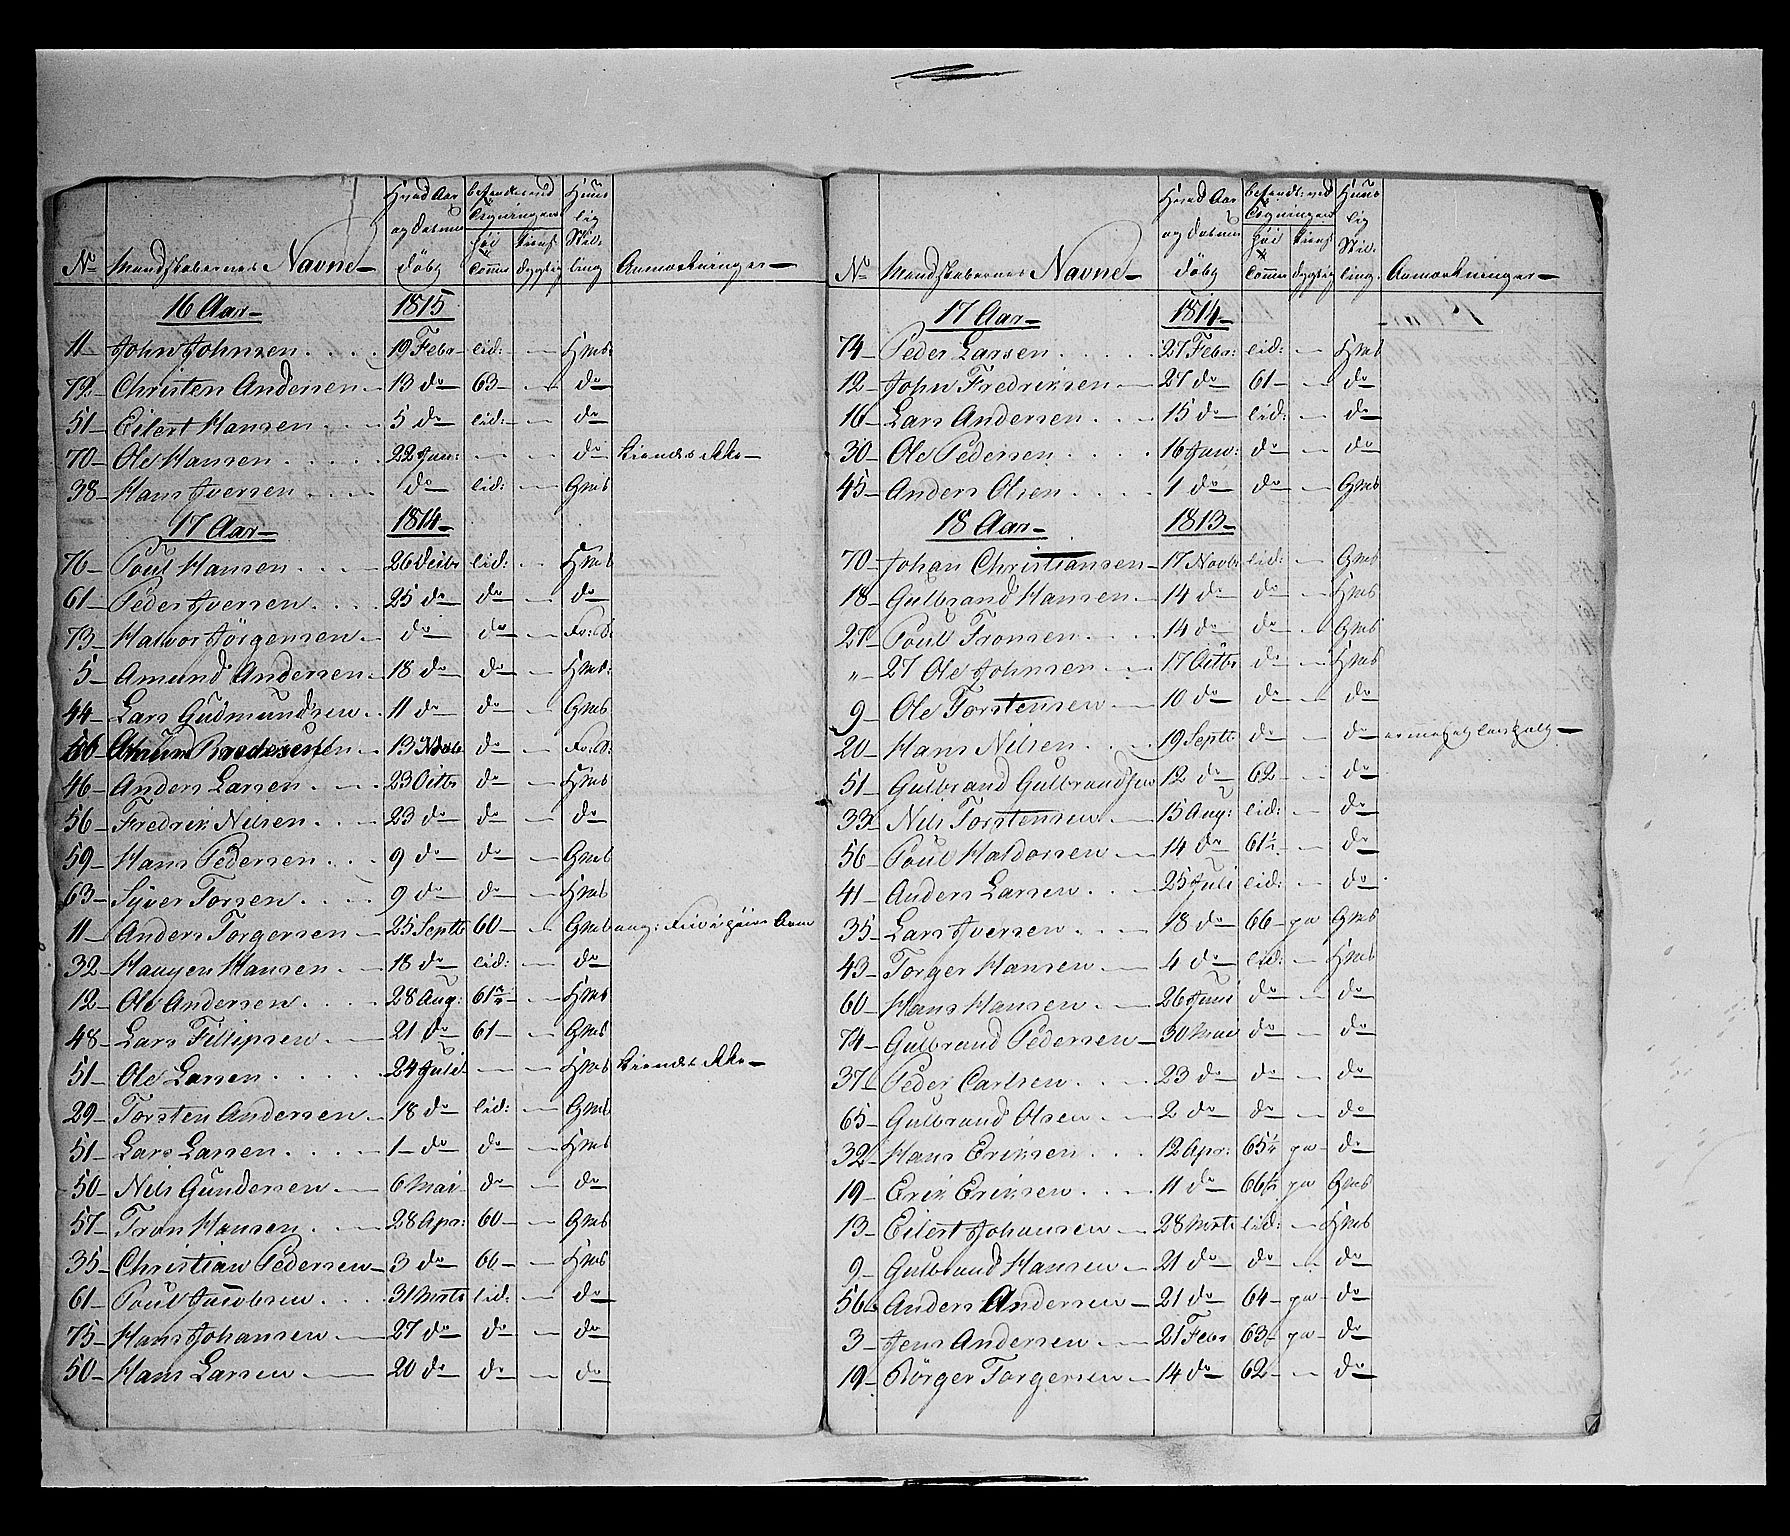 No Mandskabernes Navne Hvad Aar og datum døbt befandt ved Sessionen høi Tomm tienst dygtig Huus lig Stil ling Anmærkninger
16 Aar 1815
11 John Johnsen 19 Febr lid: Hmd:
72 Christen Andersen 13 do 63 do
51 Eilert Hansen 5 do lid: do
70 Ole Hansen 22 Jan: do kiendes ikke
38 Hans Iversen 1 do lid: Gmd
17 Aar 1814
76 Poul Hansen 26 Decbr lid: Hmd
61 Peder Iversen 25 do do do
73 Halvor Jörgensen do do
5 Amund Andersen 18 do do Hmd:
44 Lars Gudmundsen 11 do do Gmd
13 do
46 Anders Larsen 23 Octbr do Hmd
56 Fredrik Nilsen 23 do do do
59 Hans Pedersen 9 do do Gmd
63 Syver Torsen 9 do do Hmd
11 Anders Torgersen 25 Septbr 60 Gmd
32 Haagen Hansen 18 do lid: do
12 Ole Andersen 28 Aug: 61½ Hmd
48 Lars Fillipsen 21 do 61 Gmd
51 Ole Larsen 24 Juli Hmd kiendes ikke
29 Torsten Andersen 18 do lid: Gmd
51 Lars Larsen 1 do do Hmd
50 Nils Gundersen 6 Mai do do
57 Tron Hansen 28 Apr: 60 Gmd
35 Christian Pedersen 3 do 60 Hmd
61 Poul Jacobsen 31 Marts lid: do
75 Hans Johansen 27 do do do
50 Hans Larsen 20 do do do
No Mandskabernes Navne Hvad Aar og datum døbt befandt: ved Sessionen høi Tomm tienst dygtig Huus lig Stil ling Anmærkninger
17 Aar 1814
74 Peder Larsen 27 Febr: lid: Hmd
12 John Fredriksen 27 do 61 do
16 Lars Andersen 15 do lid: do
30 Ole Pedersen 16 Jan: do do
45 Anders Olsen 1 do do Gmd
18 Aar 1813
70 Johan Christiansen 17 Novbr lid: Gmd
18 Gulbrand Hansen 14 do do Hmd
27 Poul Tronsen 14 do do Gmd
" 27 Ole Johnsen 17 Octbr do Hmd
9 Ole Torstensen 10 do do do
20 Hans Nilsen 19 Septbr do do
51 Gulbrand Gulbrandsen 12 do 62 do
33 Nils Torstensen 15 Aug: lid: do
56 Poul Haldorsen 14 do 61½ do
41 Anders Larsen 25 Juli lid: do
35 Lars Iversen 18 do 66 Gmd
43 Torger Hansen 4 do lid: Hmd
60 Hans Hansen 26 Juni do do
74 Gulbrand Pedersen 30 Mai do do
37 Peder Carlsen 23 do do do
65 Gulbrand Olsen 2 do do do
32 Hans Eriksen 12 Apr: 65½ do
19 Erik Eriksen 11 do 66½ Gmd
13 Eilert Johansen 28 Marts lid: Hmd
9 Gulbrand Hansen 21 do do do
56 Anders Andersen 21 do 64 do
3 Jens Andersen 21 Febr 63 do
19 Börger Torgersen 14 do 62 do